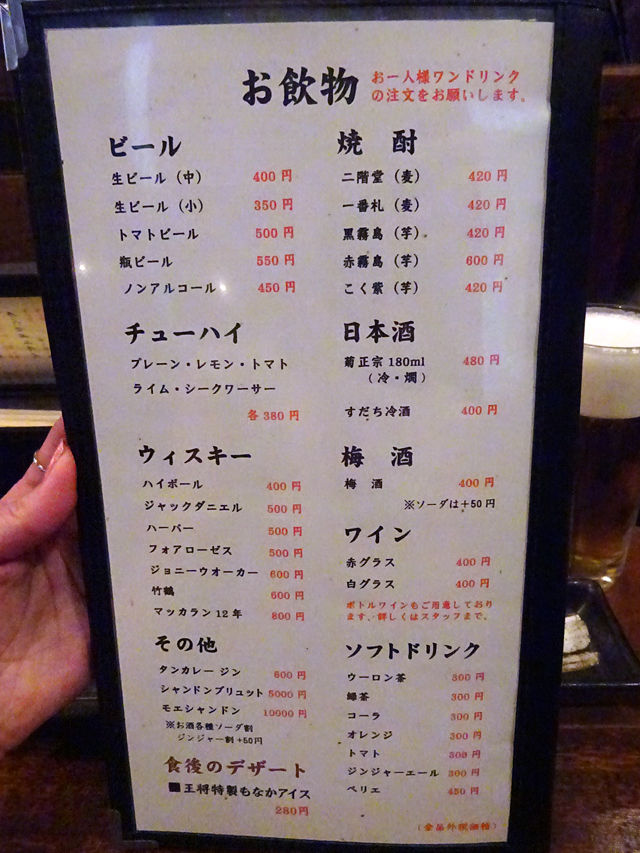 お飲物
お一人様ワンドリンク
の注文をお願いします。
ビール
生ビール（中） 400 円
生ビール（小） 350 円
トマトビール 500 円
瓶ビール 550 円
ノンアルコール 450 円
チューハイ
プレーン・レモン・トマト
ライム・シークワーサー
各 380 円
ウィスキー
ハイボール 400 円
ジャックダニエル 500 円
ハーパー 500 円
フォアローゼス 500 円
ジョニーウオーカー 600 円
竹鶴 600 円
マッカラン 12 年 800 円
その他
タンカレー ジン 600 円
シャンドンブリュット 5000 円
モエシャンドン 10000 円
※お酒各種ソーダ割
ジンジャー割 +50円
食後のデザート
■王将特製もなかアイス
280円
焼 酎
二階堂（麦） 420 円
一番札（麦） 420 円
黒霧島（芋） 420 円
赤霧島（芋） 600 円
こく紫（芋） 420 円
日本酒
菊正宗 180ml 480 円
（冷・燗）
すだち冷酒 400 円
梅 酒
梅 酒 400 円
※ソーダは＋50円
ワイン
赤グラス 400 円
白グラス 400 円
ボトルワインもご用意しており
ます、詳しくはスタッフまで。
ソフトドリンク
ウーロン茶 300 円
緑茶 300 円
コーラ 300 円
オレンジ 300 円
トマト 300 円
ジンジャーエール 300 円
ペリエ 450 円
（全品外税価格）